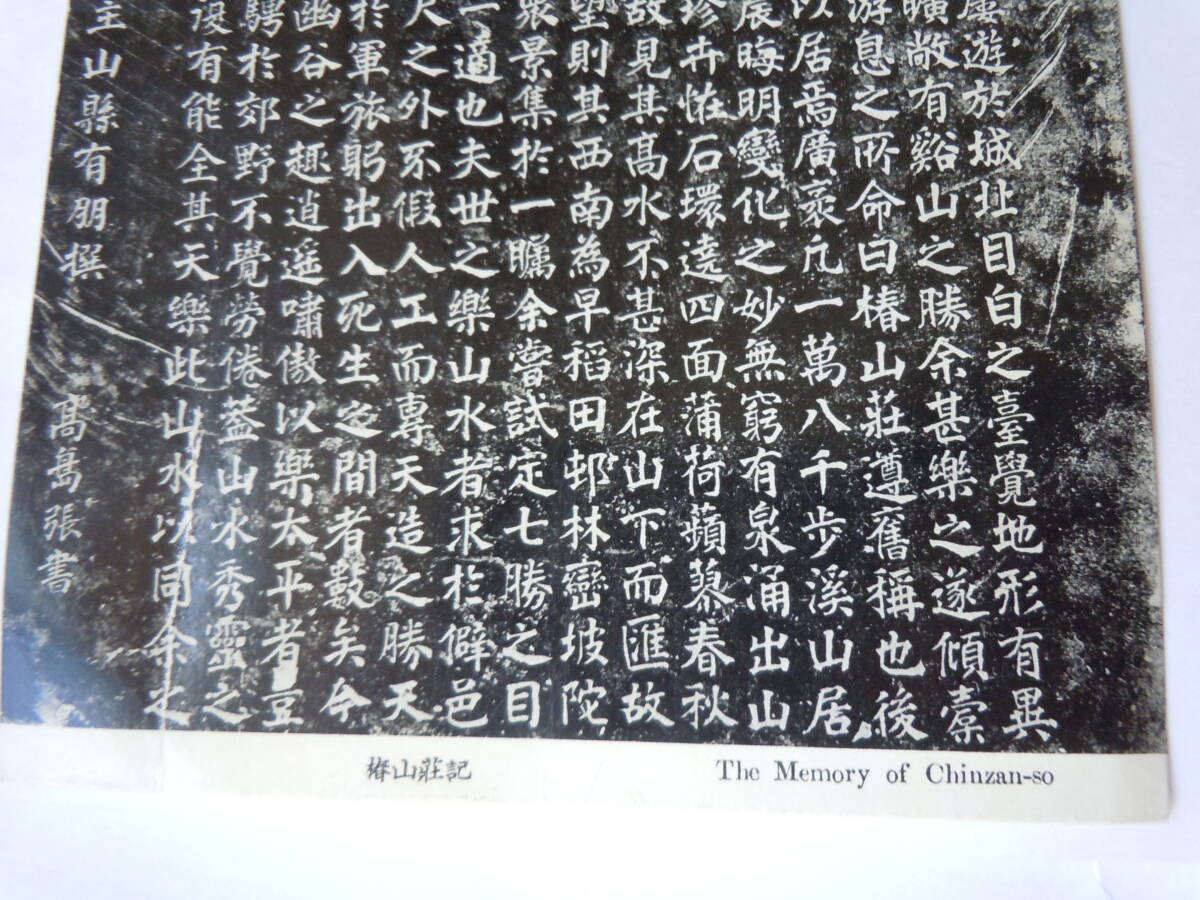 屢遊於城北目白之臺覺地形有異
曠敞有谿山之勝余甚樂之遂傾橐
游息之所命曰椿山莊遵舊稱也後
以居焉廣袤凡一萬八千步溪山居
晨晦明變化之妙無窮有泉涌出山
珍卉恠石環遶四面蒲荷蘋蓼春秋
故見其高水不甚深在山下而匯故
望則其西南為早稻田邨林巒坡陀
衆景集於一矚余嘗試定七勝之目
一適也夫世之樂山水者求於僻邑
尺之外不假人工而專天造之勝天
於軍旅躬出入死生之間者數矣今
幽谷之趣逍遙嘯傲以樂太平者豈
騁於郊野不覺勞倦蓋山水秀靈之
有能全其天樂此山水以同今之
主山縣有朋撰 髙島張書
椿山莊記
The Memory of Chinzan-so